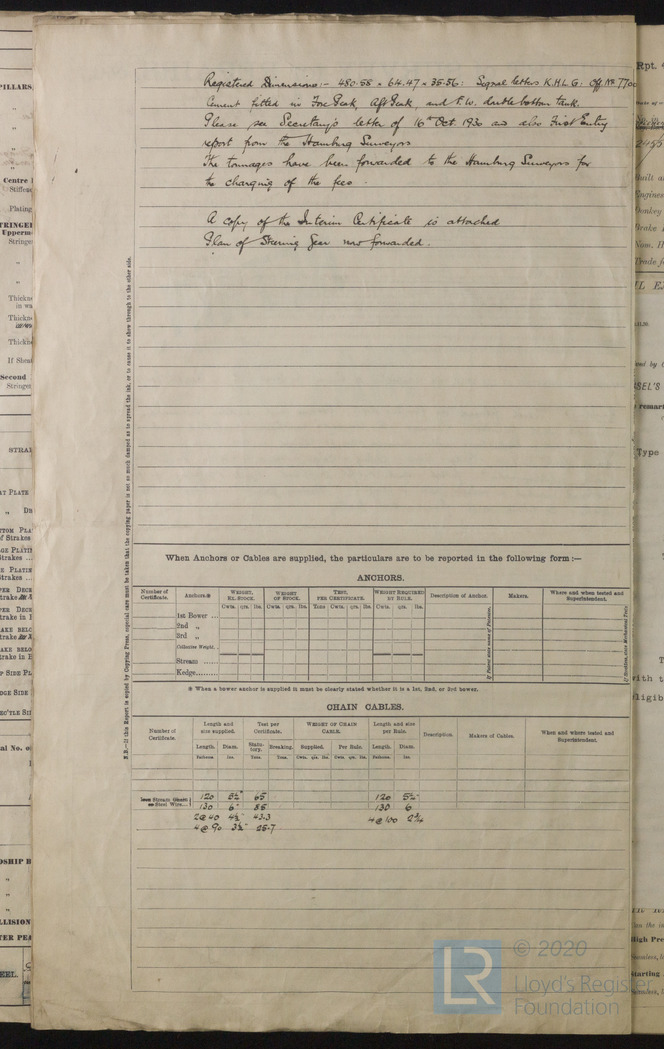 Registered Dimensions:- 480.58 × 64.47 × 35.56: Signal letters K.H.L.G. Off. No 7700
Cement fitted in Fore Peak, Aft Peak, and F.W. double bottom tank.
Please see Secretary's letter of 16th Oct. 1930 and also First Entry
report from the Hamburg Surveyors
The tonnages have been forwarded to the Hamburg Surveyors for
the charging of the fees.
A copy of the Interim Certificate is attached
Plan of Steering Gear now forwarded.
N.B.—If this Report is copied by Copying Press, especial care must be taken that the copying paper is not so much damped as to spread the ink, or to cause it to show through to the other side.
When Anchors or Cables are supplied, the particulars are to be reported in the following form:—
ANCHORS.
Number of Certificate. Anchors.※ WEIGHT, EX. STOCK. WEIGHT OF STOCK. TEST, PER CERTIFICATE. WEIGHT REQUIRED BY RULE. Description of Anchor. Makers. Where and when tested and Superintendent.
Cwts. qrs. lbs. Cwts. qrs. lbs. Tons Cwts. qrs. lbs. Cwts. qrs. lbs.
1st Bower ...
2nd „
3rd „
Collective Weight.
Stream ......
Kedge........
※ When a bower anchor is supplied it must be clearly stated whether it is a 1st, 2nd, or 3rd bower.
CHAIN CABLES.
Number of Certificate. Length and size supplied. Test per Certificate. WEIGHT OF CHAIN CABLE. Length and size per Rule. Description. Makers of Cables. When and where tested and Superintendent.
Length. Diam. Statutory. Breaking. Supplied. Per Rule. Length. Diam.
Fathoms. Ins. Tons. Tons. Cwts. qrs. lbs. Cwts. qrs. lbs. Fathoms. Ins.
120 5½" 65 120 5½"
or Steel Wire... 130 6" 85 130 6
2@40 4½" 43.3
4@90 3½" 25.7 4@100 2¾
LR © 2020
Lloyd's Register
Foundation